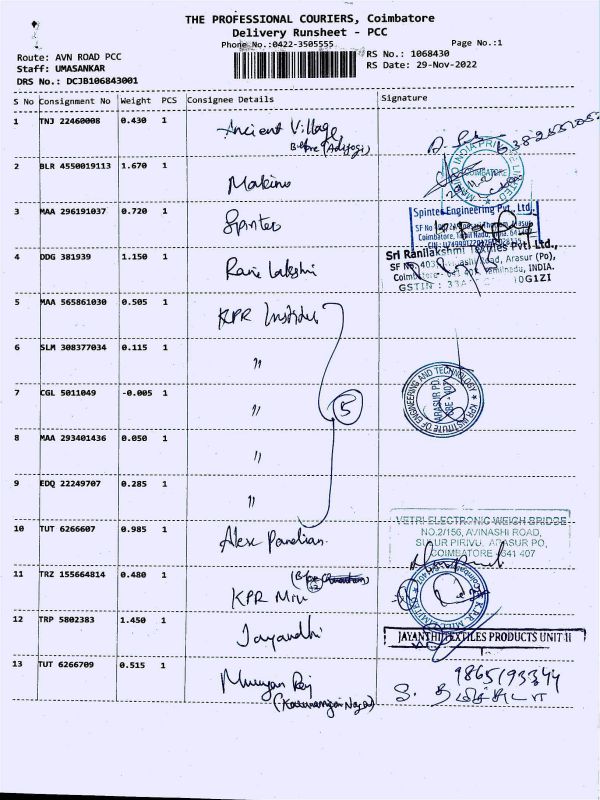 THE PROFESSIONAL COURIERS, Coimbatore
Delivery Runsheet - PCC
Phone No.:0422-3505555
Page No.:1
Route: AVN ROAD PCC
RS No.: 1068430
Staff: UMASANKAR
RS Date: 29-Nov-2022
DRS No.: DCJB106843001
S No Consignment No Weight PCS Consignee Details Signature
1 TNJ 22460008 0.430 1 Ancient Village
Before (Adiyogi)
2 BLR 4550019113 1.670 1 Makino
COIMBATORE
3 MAA 296191037 0.720 1 Spintec
Spintex Engineering Pvt. Ltd.
4 DDG 381939 1.150 1 Rani Lakshmi
Sri Ranilakshmi Textiles Pvt. Ltd.,
Road, Arasur (Po),
INDIA.
GSTIN : 33A 0G1ZI
5 MAA 565861030 0.505 1 KPR Institute
6 SLM 308377034 0.115 1 "
7 CGL 5011049 -0.005 1 " 5
KPR INSTITUTE OF ENGINEERING AND TECHNOLOGY
ARASUR PO.
8 MAA 293401436 0.050 1 "
9 EDQ 22249707 0.285 1 "
10 TUT 6266607 0.985 1 Alex Pandian
VETRI ELECTRONIC WEIGH BRIDGE
NO.2/156, AVINASHI ROAD,
SULUR PIRIVU, ARASUR PO,
COIMBATORE - 641 407
11 TRZ 155664814 0.480 1 KPR Mill
12 TRP 5802383 1.450 1 Jayandhi
JAYANTHI TEXTILES PRODUCTS UNIT II
13 TUT 6266709 0.515 1 Murugan Raj
9865193344